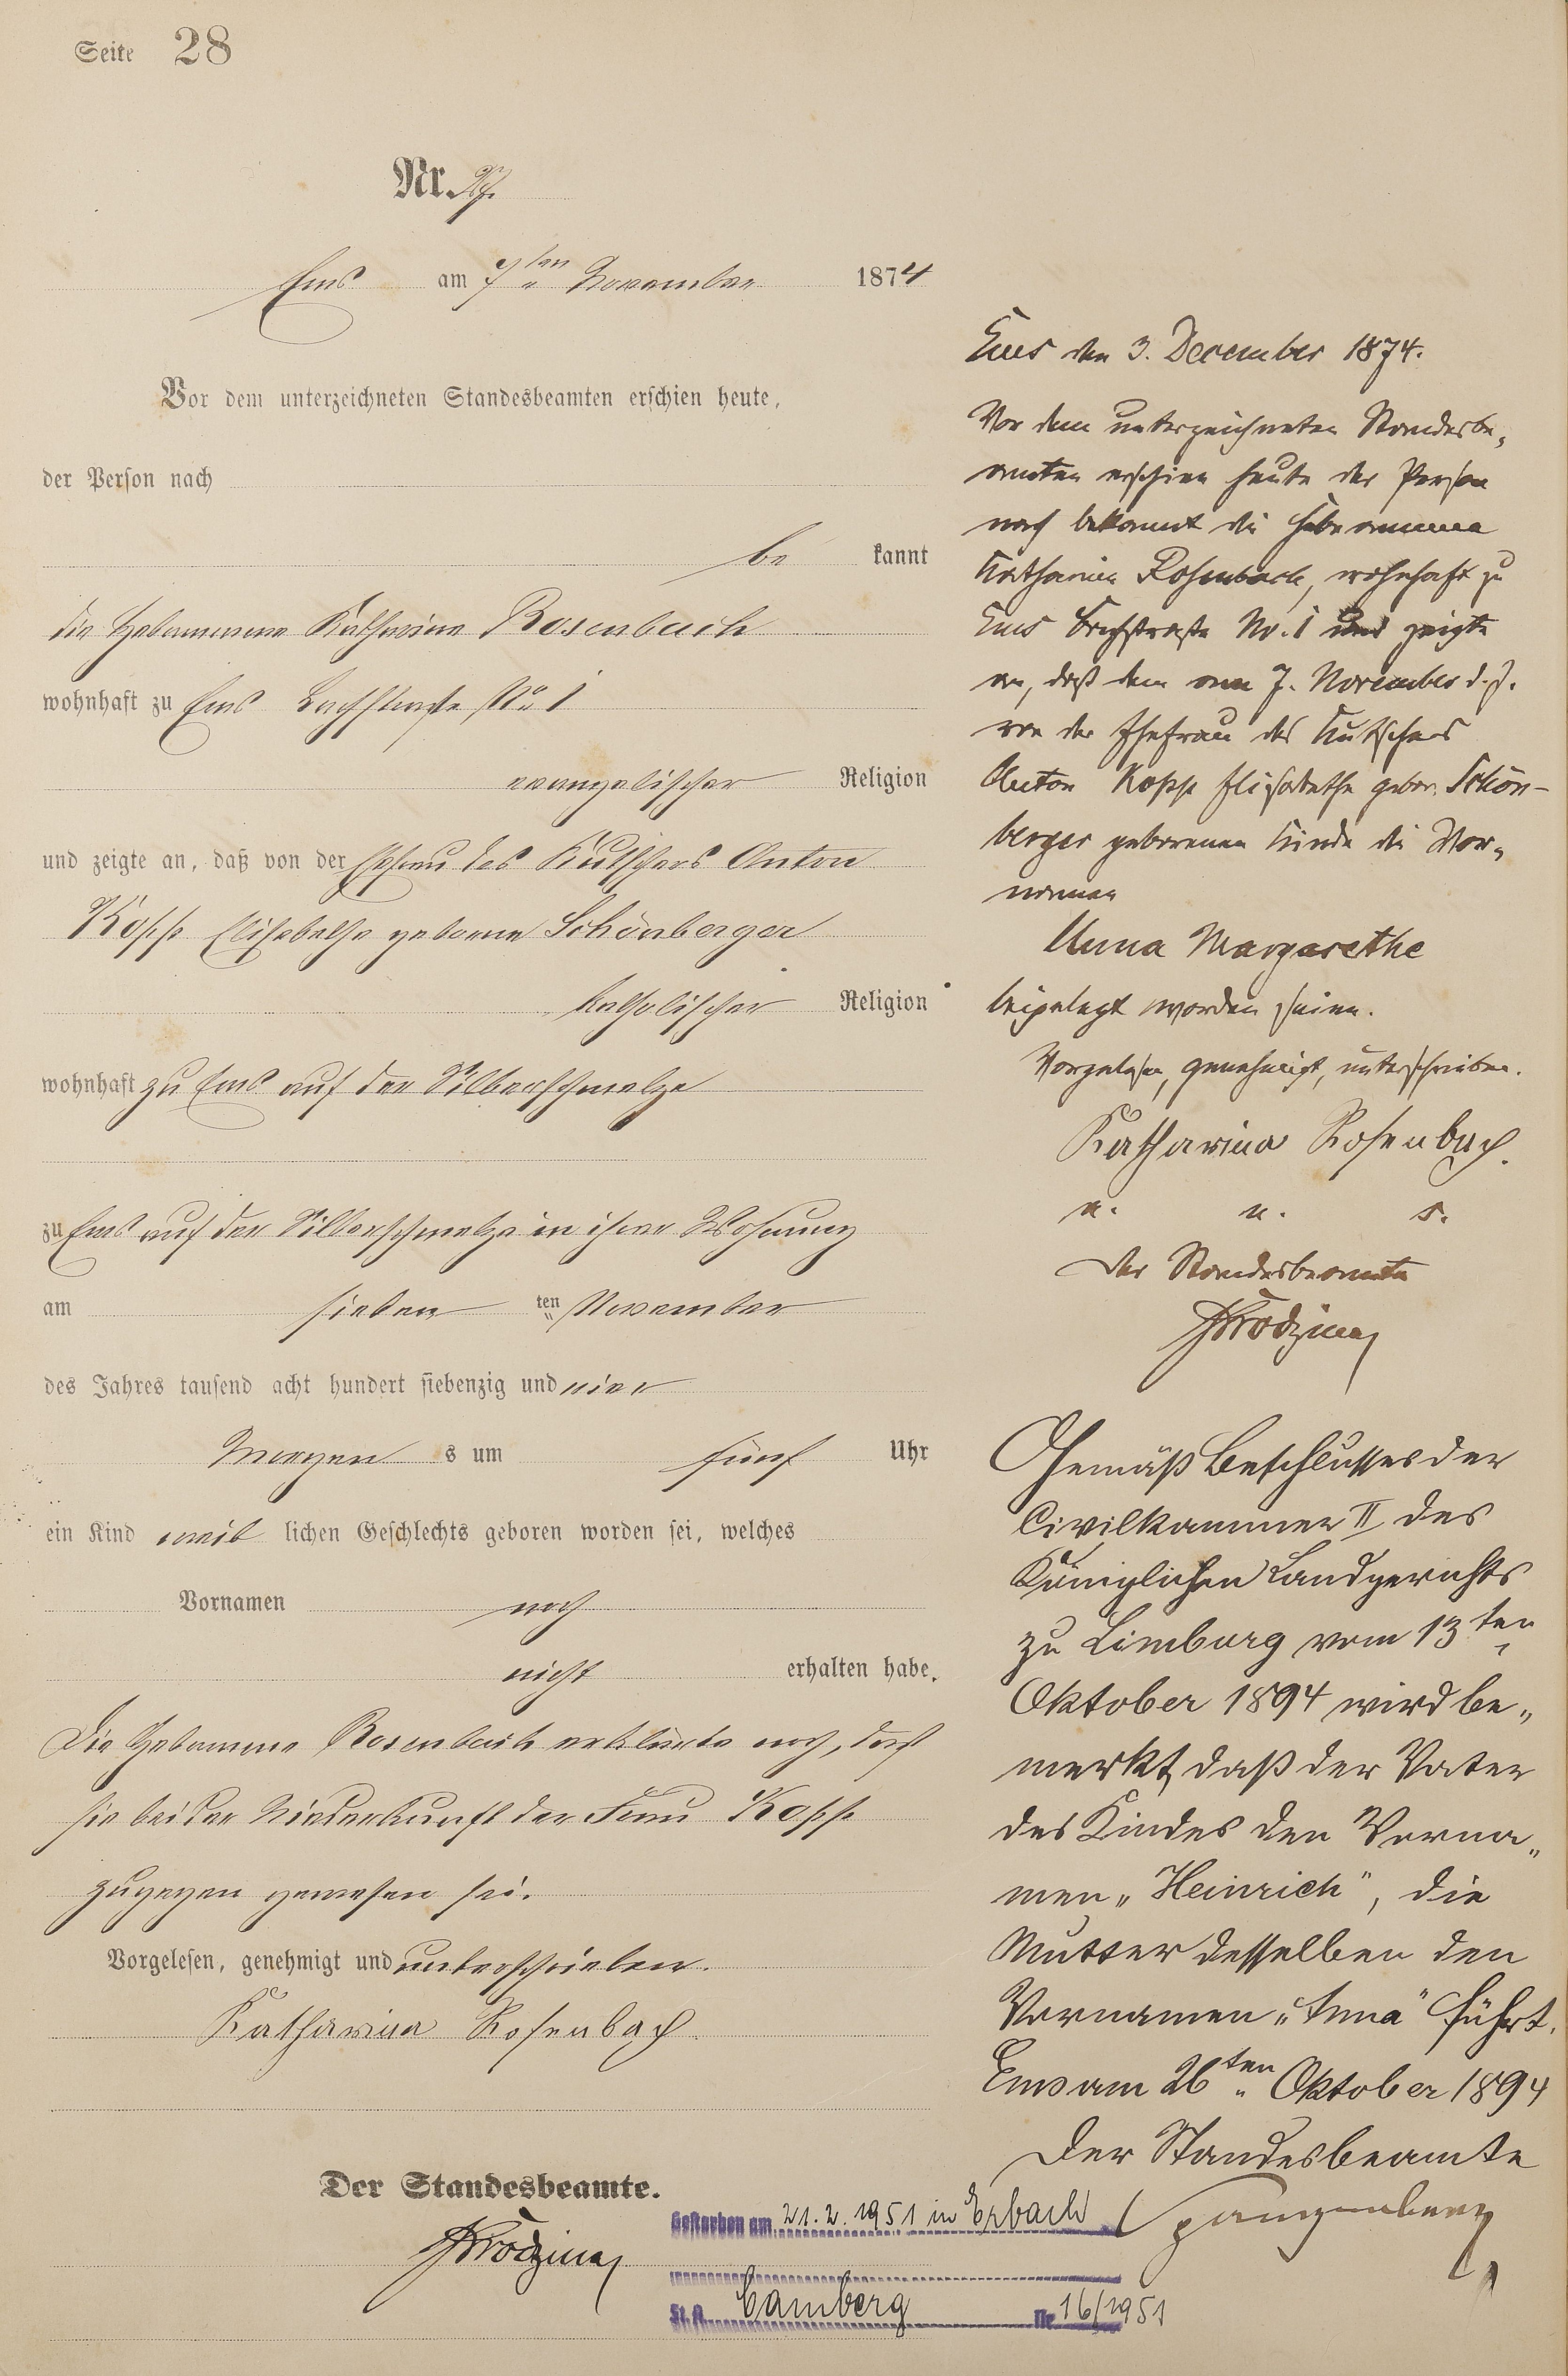 Seite 28
Nr.
Ems am 7ten November 1874
Vor dem unterzeichneten Standesbeamten erschien heute,
der Person nach
be kannt
die Hebamme Katharina Rosenbach
wohnhaft zu Ems Bachstraße No 1
evangelischer Religion
und zeigte an, daß von der Ehefrau des Kutschers Anton
Kopp Elisabethe geborene Schönberger
katholischer Religion
wohnhaft zu Ems auf der Silberschmelze
zu Ems auf der Silberschmelze in ihrer Wohnung
am sieben ten November
des Jahres tausend acht hundert siebenzig und vier
Morgen s um fünf Uhr
ein Kind weib lichen Geschlechts geboren worden sei, welches
Vornamen noch
nicht erhalten habe.
Die Hebamme Rosenbach erklärte noch, daß
sie bei der Niederkunft der Frau Kopp
zugegen gewesen sei.
Vorgelesen, genehmigt und unterschrieben.
Katharina Rosenbach
Der Standesbeamte.
Ems den 3. December 1874.
Vor dem unterzeichneten Standesbe-
amten erschien heute der Person
nach bekannt die Hebamme
Katharina Rosenbach, wohnhaft zu
Ems Bachstraße No. 1 und zeigte
an, daß dem am 7. November d. J.
von der Ehefrau des Kutschers
Anton Kopp Elisabethe gebor. Schön-
berger geborenen Kinde die Vor-
namen
Anna Margarethe
beigelegt worden seien.
Vorgelesen, genehmigt, unterschrieben.
Katharina Rosenbach.
u. u. s.
Der Standesbeamte
Gemäß Beschlusses der
Civilkammer II des
Königlichen Landgerichts
zu Limburg vom 13ten
Oktober 1894 wird be-
merkt, daß der Vater
des Kindes den Vorna-
men „Heinrich", die
Mutter desselben den
Vornamen „Anna" führt.
Ems am 26ten Oktober 1894
Der Standesbeamte
Gestorben am 21.2.1951 in Erbach
St. A. Camberg Nr. 16/1951